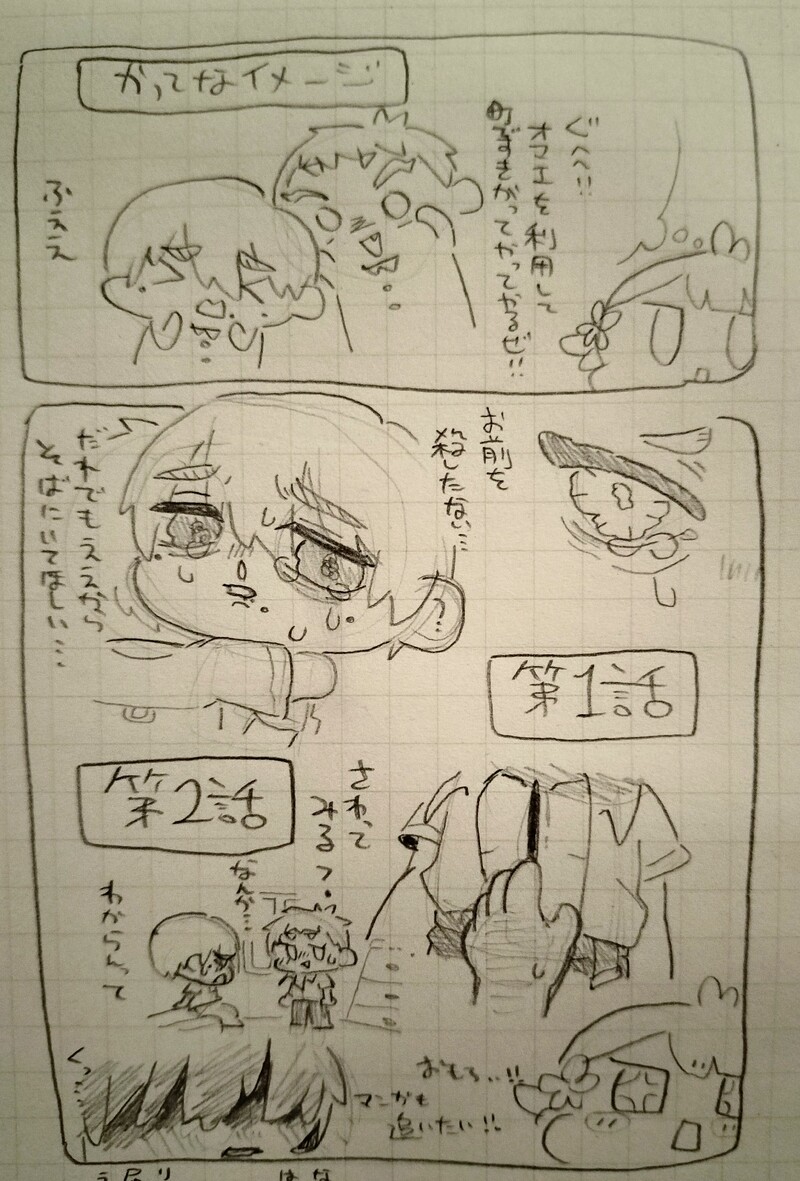 かってなイメージ
ぐへへ!!
オマエを利用して
町ずきがってやってやるぜ!!
ふええ
お前を
殺したない…
だれでもええから
そばにいてほしい…
第1話
さわって
みる?
なんか…
わからんって
第2話
おもろい!!
マンガも
追いたい!!
くっ…